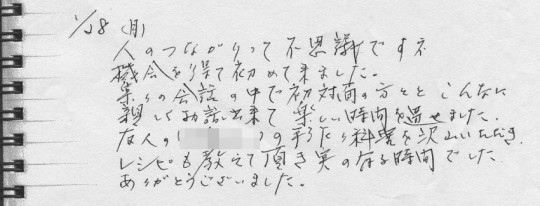 1/28 (月)
人のつながりって不思議ですネ
機会を得て初めて来ました。
集りの会話の中で初対面の方々とこんなに
親しくお話出来て楽しい時間を過せました。
友人の( )の手作り料理を沢山いただき、
レシピも教えて頂き実の有る時間でした
ありがとうございました。